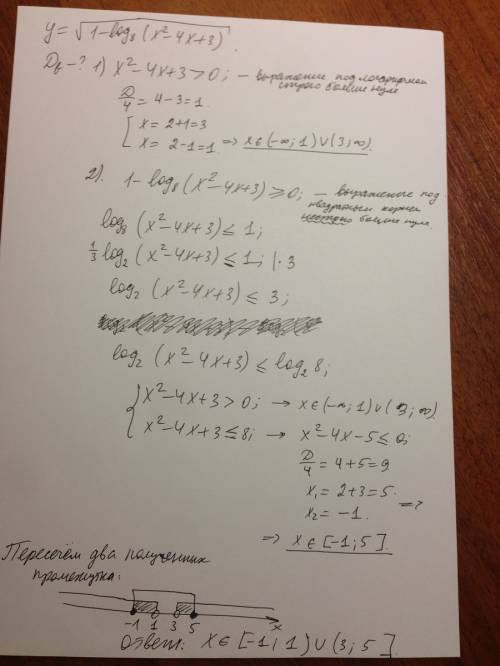 y = √(1-log₈(x²-4x+3)).
D_f - ? 1) x²-4x+3 > 0; — выражение под логарифмом
строго больше нуля
D/4 = 4-3 = 1
[ x = 2+1 = 3
[ x = 2-1 = 1 ⇒ x∈(-∞; 1)∪(3; ∞)
2). 1-log₈(x²-4x+3) ⩾ 0; — выражение под
квадратным корнем
нестрого больше нуля.
log₈(x²-4x+3) ≤ 1;
1/3 log₂(x²-4x+3) ≤ 1; |·3
log₂(x²-4x+3) ≤ 3;
log₂(x²-4x+3) ≤ log₂8;
{ x²-4x+3 > 0; → x∈(-∞; 1)∪(3; ∞)
{ x²-4x+3 ≤ 8; → x²-4x-5 ≤ 0;
D/4 = 4+5 = 9
x₁ = 2+3 = 5.
x₂ = -1. ⇒
⇒ x∈[-1; 5].
Пересечём два полученных
промежутка:
-1 1 3 5 x
Ответ: x∈[-1; 1)∪(3; 5]